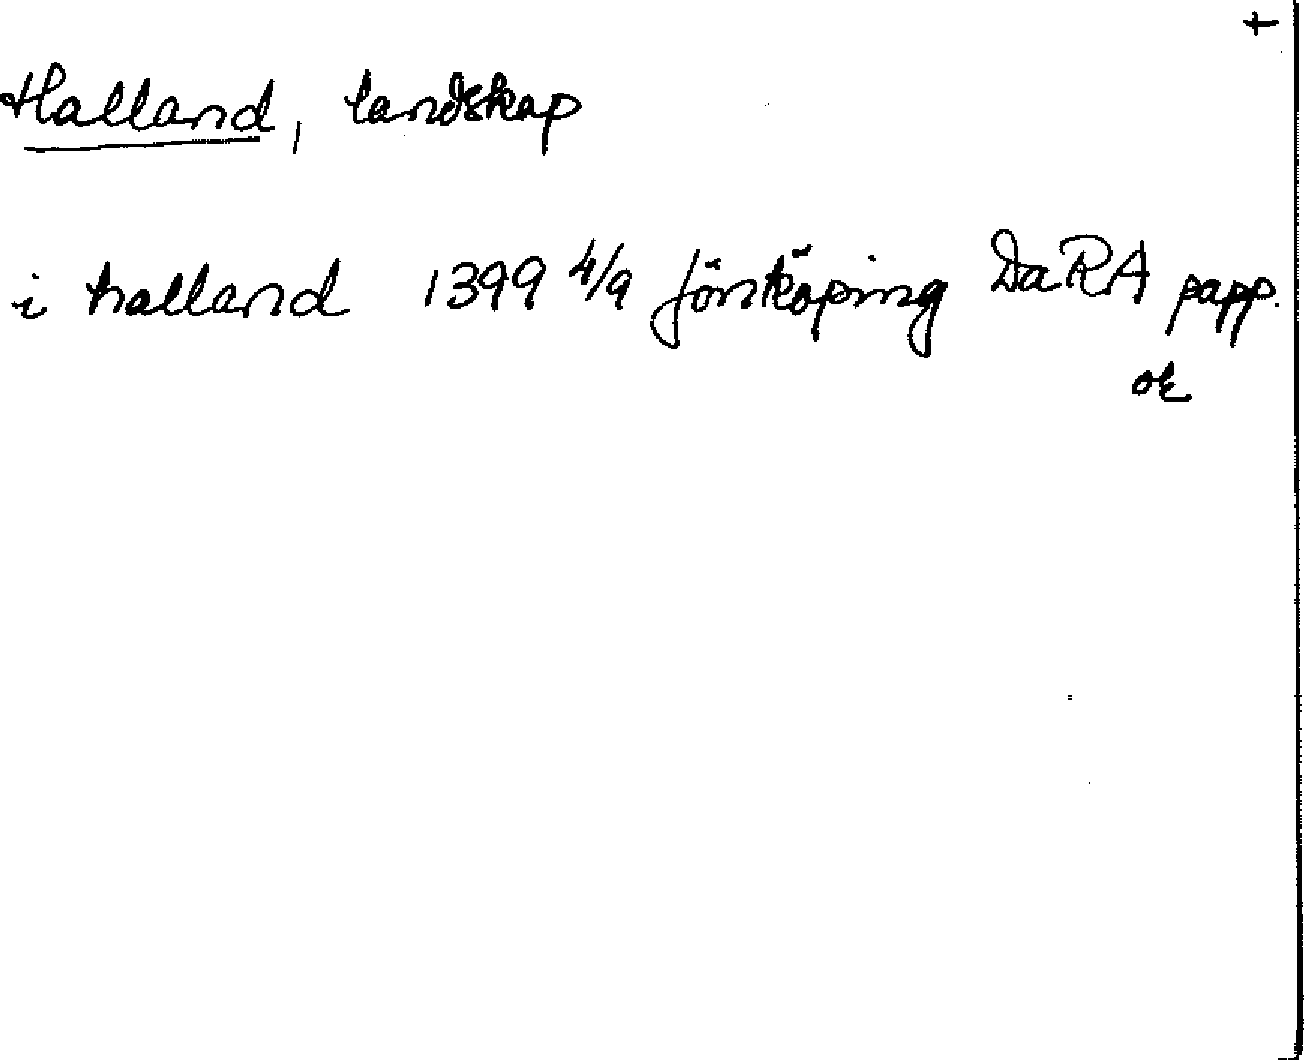 +
Halland, landskap
i halland 1399 4/9 Jönköping DaRA papp.
ok